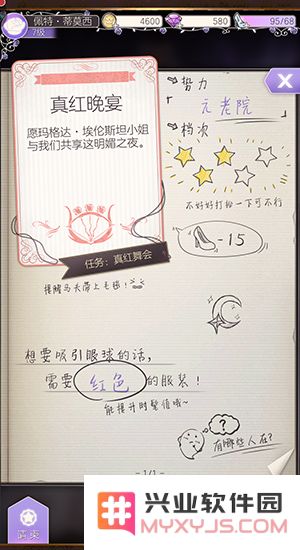 佩特·蒂莫西
7级
4600
580
95/68
真红晚宴
愿玛格达·埃伦斯坦小姐
与我们共享这明媚之夜。
任务：真红舞会
提醒马夫带上毛毯！
势力
元老院
档次
不好好打扮一下可不行
-15
想要吸引眼球的话，
需要 红色 的服装！
能提升时髦值哦~
?
有哪些人在?
- 1/1 -
请柬
兴业软件园
MYXYJS.COM